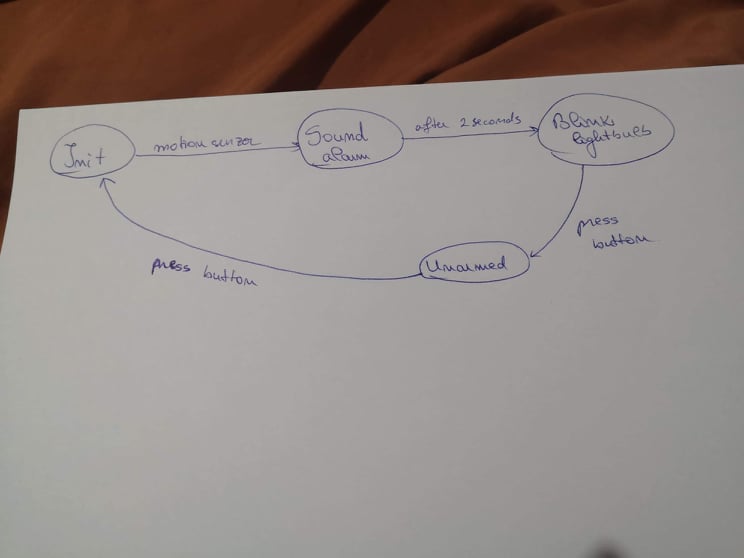 Init
motion senzor
Sound
alarm
after 2 seconds
Blink
lightbulb
press
button
Unarmed
press button